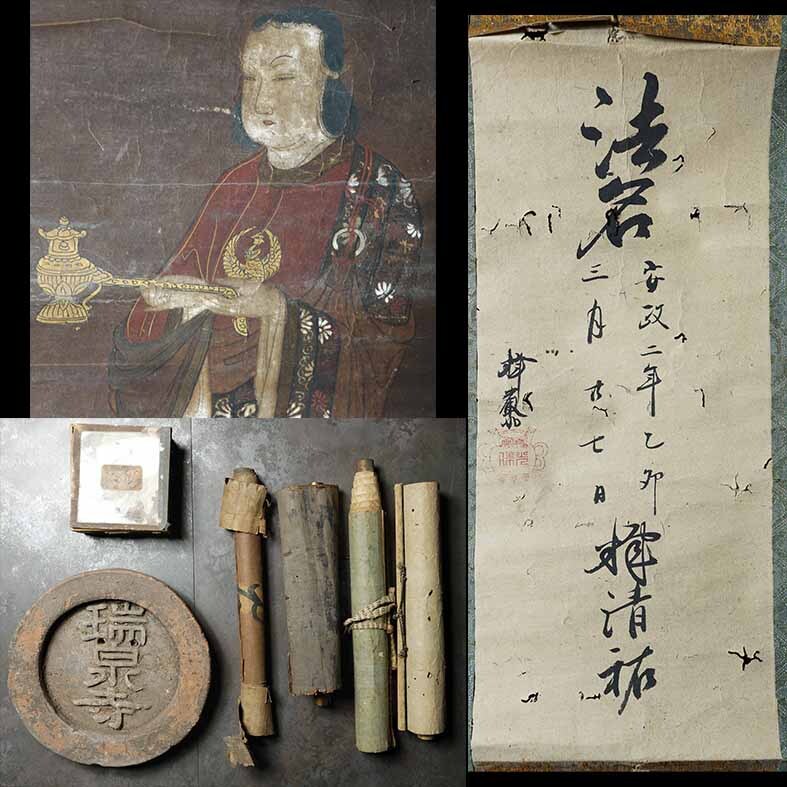 法名
安政二年乙卯
三月廿七日
釋清祐
瑞泉寺